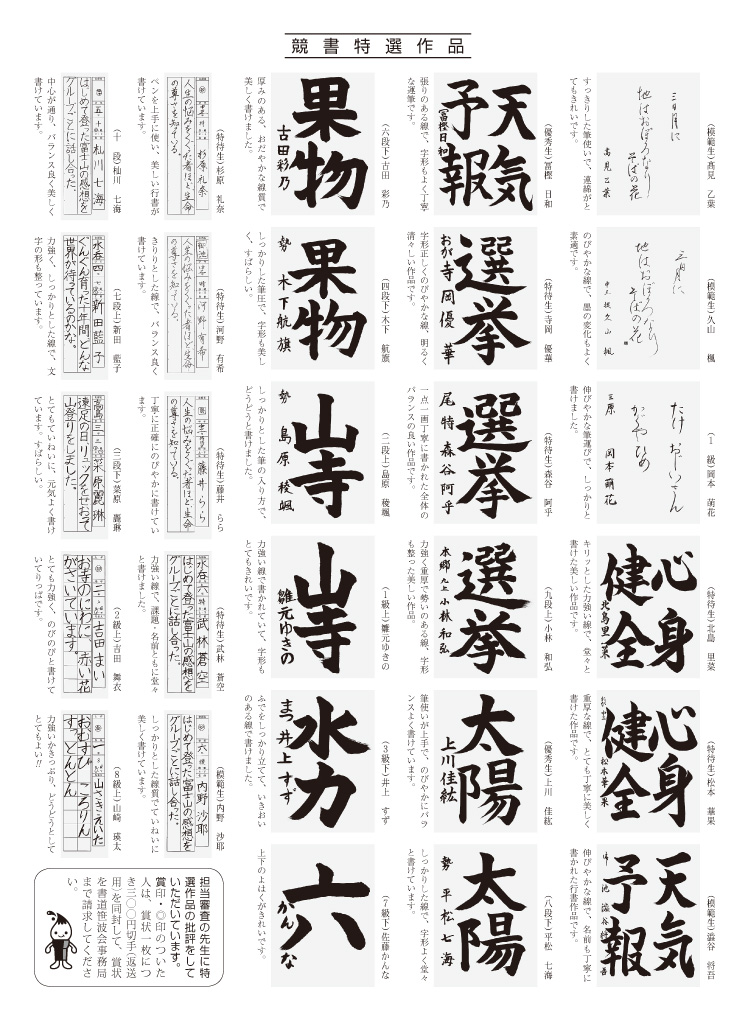 競書特選作品
三日月に
地はおぼろなり
そばの花
高見乙葉
（模範生）髙見　乙葉
すっきりした筆使いで、連綿がとてもきれいです。
三日月に
地はおぼろなり
そばの花
久山楓
（模範生）久山　楓
のびやかな線で、墨の変化もよく素適です。
たけ
おじいさん
かぐやひめ
岡本萌花
（１級）岡本　萌花
伸びやかな筆運びで、しっかりと書けました。
心身
健全
北島里菜
（特待生）北島　里菜
キリッとした力強い線で、堂々と書けた美しい作品です。
心身
健全
松本華果
（特待生）松本　華果
重厚な線で、とても丁寧に美しく書けた作品です。
天気
予報
（模範生）澁谷　将吾
伸びやかな線で、名前も丁寧に書かれた行書作品です。
天気
予報
冨樫日和
（優秀生）冨樫　日和
張りのある線で、字形もよく丁寧な運筆です。
選挙
おが寺岡優華
（特待生）寺岡　優華
字形正しくのびやかな線、明るく清々しい作品です。
選挙
尾特森谷阿乎
（特待生）森谷　阿乎
一点一画丁寧に書かれた全体のバランスの良い作品です。
選挙
水郷九上小林和弘
（九段上）小林　和弘
力強く重厚で勢いのある線、字形も整った美しい作品。
太陽
上川佳紘
（優秀生）上川　佳紘
筆使いが上手で、のびやかにバランスよく書けています。
太陽
勢平松七海
（八段上）平松　七海
しっかりした線で、字形よく堂々と書けています。
果物
古田彩乃
（六段下）古田　彩乃
厚みのある、おだやかな線質で美しく書けました。
果物
勢木下航旗
（四段下）木下　航旗
しっかりした筆圧で、字形も美しく、すばらしい。
山寺
勢島原稜颯
（二段上）島原　稜颯
しっかりとした筆の入り方で、どうどうと書けました。
山寺
雛元ゆきの
（１級上）雛元ゆきの
力強い線で書かれていて、字形もとてもきれいです。
水力
まつ井上すず
（３級下）井上　すず
ふでをしっかり立てて、いきおいのある線で書けました。
六
かんな
（７級下）佐藤かんな
上下のよはくがきれいです。
人生の悩みをくぐった者ほど生命
の尊さを知っている。
杉原礼奈
（特待生）杉原　礼奈
ペンを上手に使い、美しい行書が書けています。
人生の悩みをくぐった者ほど生命
の尊さを知っている。
河野有希
（特待生）河野　有希
きりりとした線で、バランス良く書けています。
人生の悩みをくぐった者ほど生命
の尊さを知っている。
藤井らら
（特待生）藤井　らら
丁寧に正確にのびやかに書けています。
水呑六特武林蒼空
はじめて登った富士山の感想を
グループごとに話し合った。
（特待生）武林　蒼空
力強い線で、課題・名前ともに堂々と書けました。
内野沙耶
はじめて登った富士山の感想を
グループごとに話し合った。
（模範生）内野　沙耶
しっかりとした線質でていねいに美しく書けています。
杣川七海
はじめて登った富士山の感想を
グループごとに話し合った。
（十　段）杣川　七海
中心が通り、バランス良く美しく書けています。
水呑四七新田藍子
ぐんぐん育った一年間。どんな
世界が待っているのかな。
（七段上）新田　藍子
力強く、しっかりとした線で、文字の形も整っています。
菜原麗琳
遠足の日、リュックをせおって
山登りをしました。
（三段下）菜原　麗琳
とてもていねいに、元気よく書けています。すばらしい。
吉田まい
お寺のにわに、赤い花
がさいています。
（２級上）吉田　舞衣
とても力強く、のびのびと書けていてりっぱです。
山さきえいた
おむすび　ころりん
すっとんとん
（８級上）山﨑　瑛太
力強いかきっぷり、どうどうとしてとてもよい!!
担当審査の先生に特
選作品の批評をして
いただいています。
賞印・◎印のついた
人は、賞状一枚につ
き三〇〇円切手（返送
用）を同封して、賞状
を書道笹波会事務局
まで請求してくださ
い。